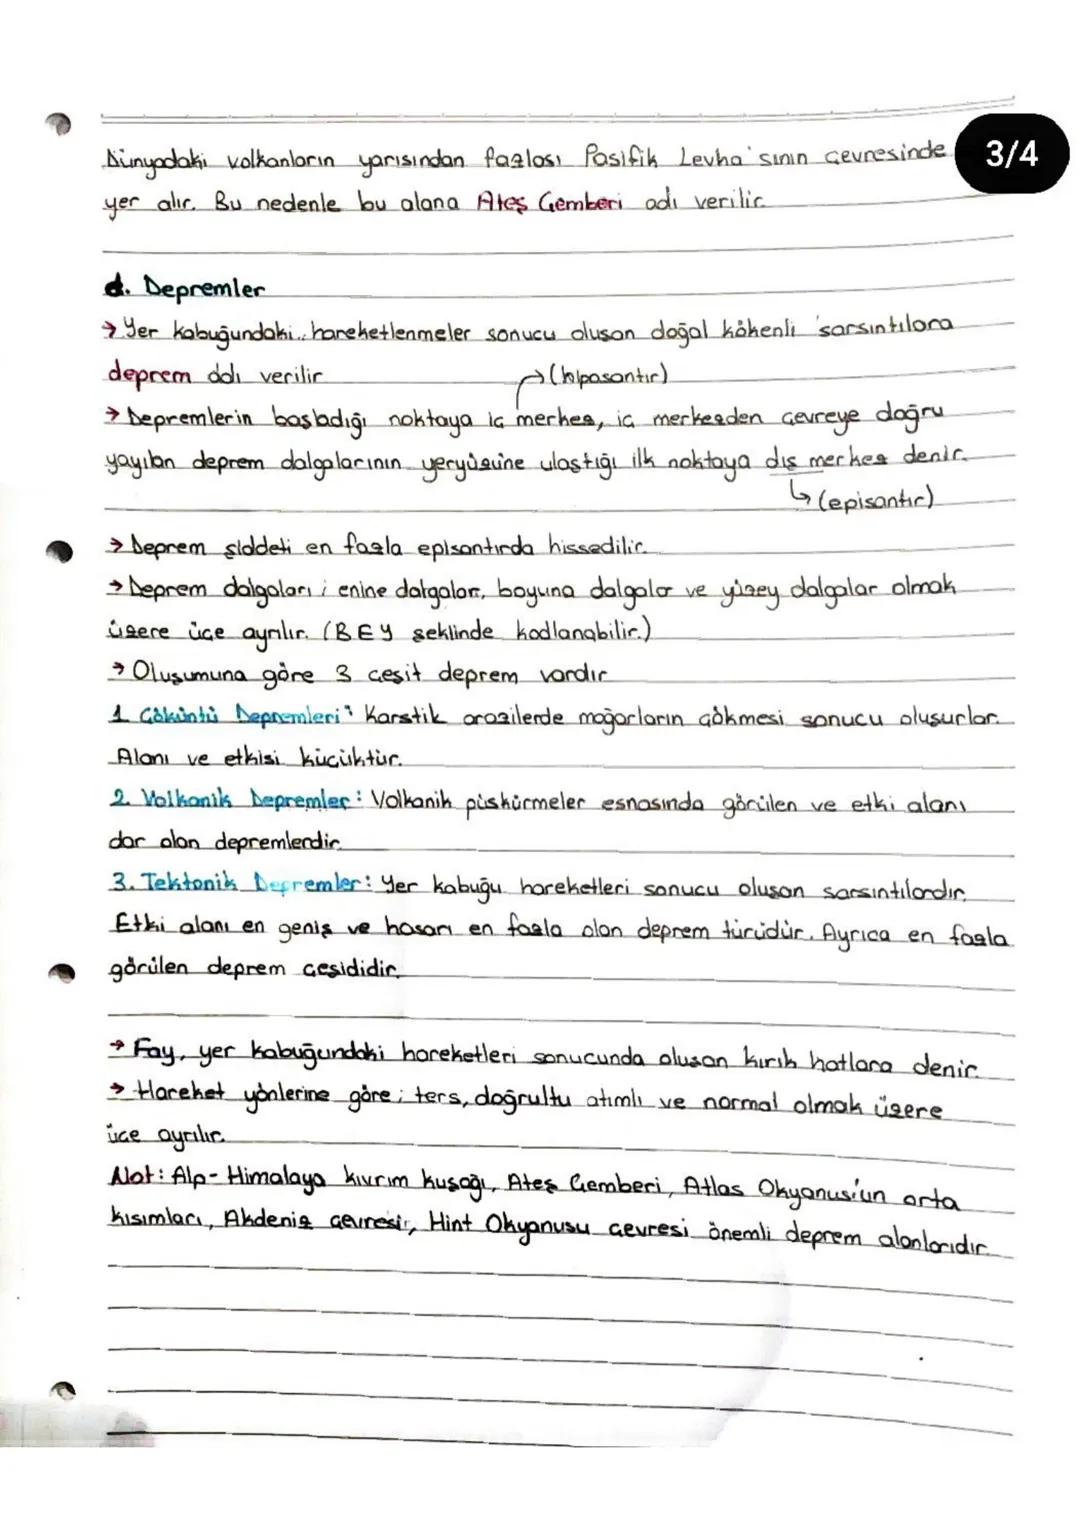 Dünyadaki volkanların yarısından fazlası Pasifik Levha'sının çevresinde
3/4
yer alır. Bu nedenle bu alana Ateş Çemberi adı verilir.
d. Depremler
→ Yer kabuğundaki hareketlenmeler sonucu oluşan doğal kökenli sarsıntılara
deprem adı verilir.
→ (hiposantır)
→ Depremlerin başladığı noktaya iç merkez, iç merkezden çevreye doğru
yayılan deprem dalgalarının yeryüzüne ulaştığı ilk noktaya dış merkez denir.
↳ (episantır)
→ Deprem şiddeti en fazla episantırda hissedilir.
→ Deprem dalgaları ; enine dalgalar, boyuna dalgalar ve yüzey dalgalar olmak
üzere üçe ayrılır. (BEY şeklinde kodlanabilir.)
→ Oluşumuna göre 3 çeşit deprem vardır
1. Çöküntü Depremleri: Karstik arazilerde mağarların çökmesi sonucu oluşurlar.
Alanı ve etkisi küçüktür.
2. Volkanik Depremler: Volkanik püskürmeler esnasında görülen ve etki alanı
dar olan depremlerdir.
3. Tektonik Depremler: Yer kabuğu hareketleri sonucu oluşan sarsıntılardır.
Etki alanı en geniş ve hasarı en fazla olan deprem türüdür. Ayrıca en fazla
görülen deprem çeşididir.
→ Fay, yer kabuğundaki hareketleri sonucunda oluşan kırık hatlara denir.
→ Hareket yönlerine göre ; ters, doğrultu atımlı ve normal olmak üzere
üçe ayrılır.
Not: Alp-Himalaya kıvrım kuşağı, Ateş Çemberi, Atlas Okyanus'un orta
kısımları, Akdeniz çevresi, Hint Okyanusu çevresi önemli deprem alanlarıdır.